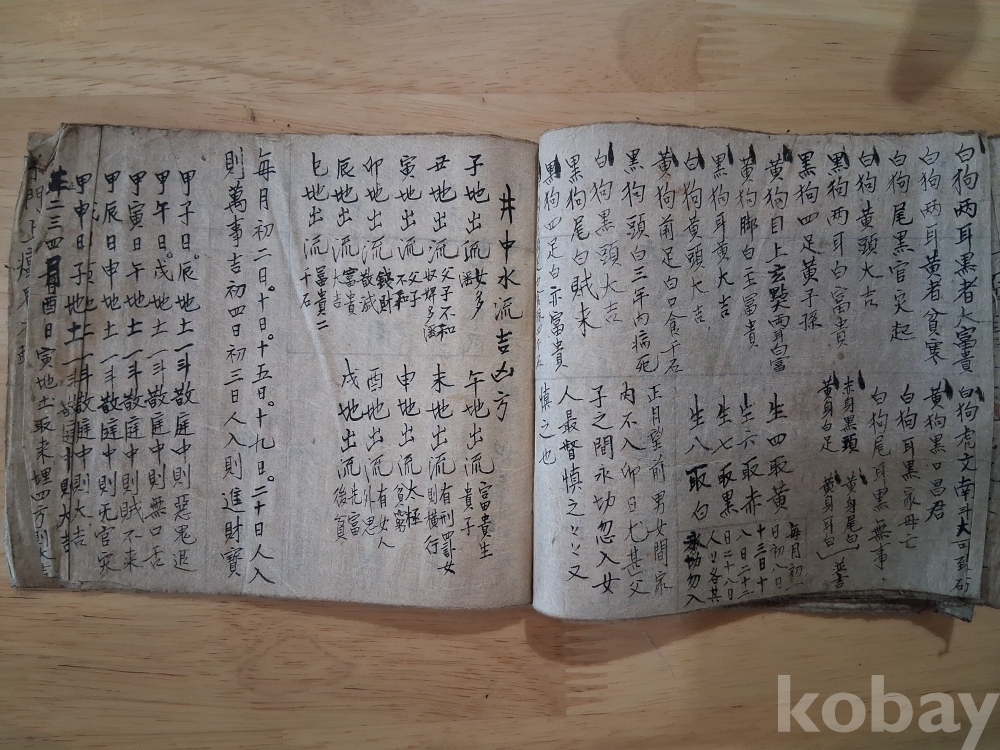 白狗两耳黑者大富貴
白狗两耳黃者貧寒
白狗尾黑官灾起
白狗黃頭大吉
黑狗两耳白富貴
黑狗四足黃子孫
黃狗目上玄㸃両耳白富
黃狗脚白主冨貴
黑狗耳黃大吉
白狗黃頭大吉
黃狗前足白口食千石
黑狗頭白三年内病死
白狗黑頭大吉
黑狗尾白賊来
黑狗四足白亦富貴
白狗虎文南斗
黃狗黑口昌君
白狗耳黑家母亡
白狗尾耳黑無事
赤身黑頭
黃身白足
黃身尾白
黃身耳白
並吉
生四取黃
生六取赤
生七取黑
生八取白
每月初一
日初八日
十三日十
八日二十三
日二十八日
正月望前男女間家
内不入卯日尤甚父
子之間永切忽入女
人最督慎之又
慎之也
井中水流吉凶方
子地出流女多
丑地出流父子不和
寅地出流父子不和
卯地出流錢財
辰地出流富貴大吉
巳地出流冨貴二千石
午地出流富貴生貴子
未地出流
申地出流
酉地出流有女人
戌地出流先富後貧
每月初二日。十日。十五日。十九日。二十日人入
則萬事吉初四日初三日人入則進財寶
甲子日。辰地土一斗敬庭中則惡鬼退
甲午日。戌地土一斗敬庭中則無口舌
甲寅日午地土一斗敬庭中則賊不来
甲辰日申地土一斗敬庭中則无官灾
甲申日子地土一斗敬庭中則大吉
二三四月酉日寅地土取来埋四方則大吉
kobay